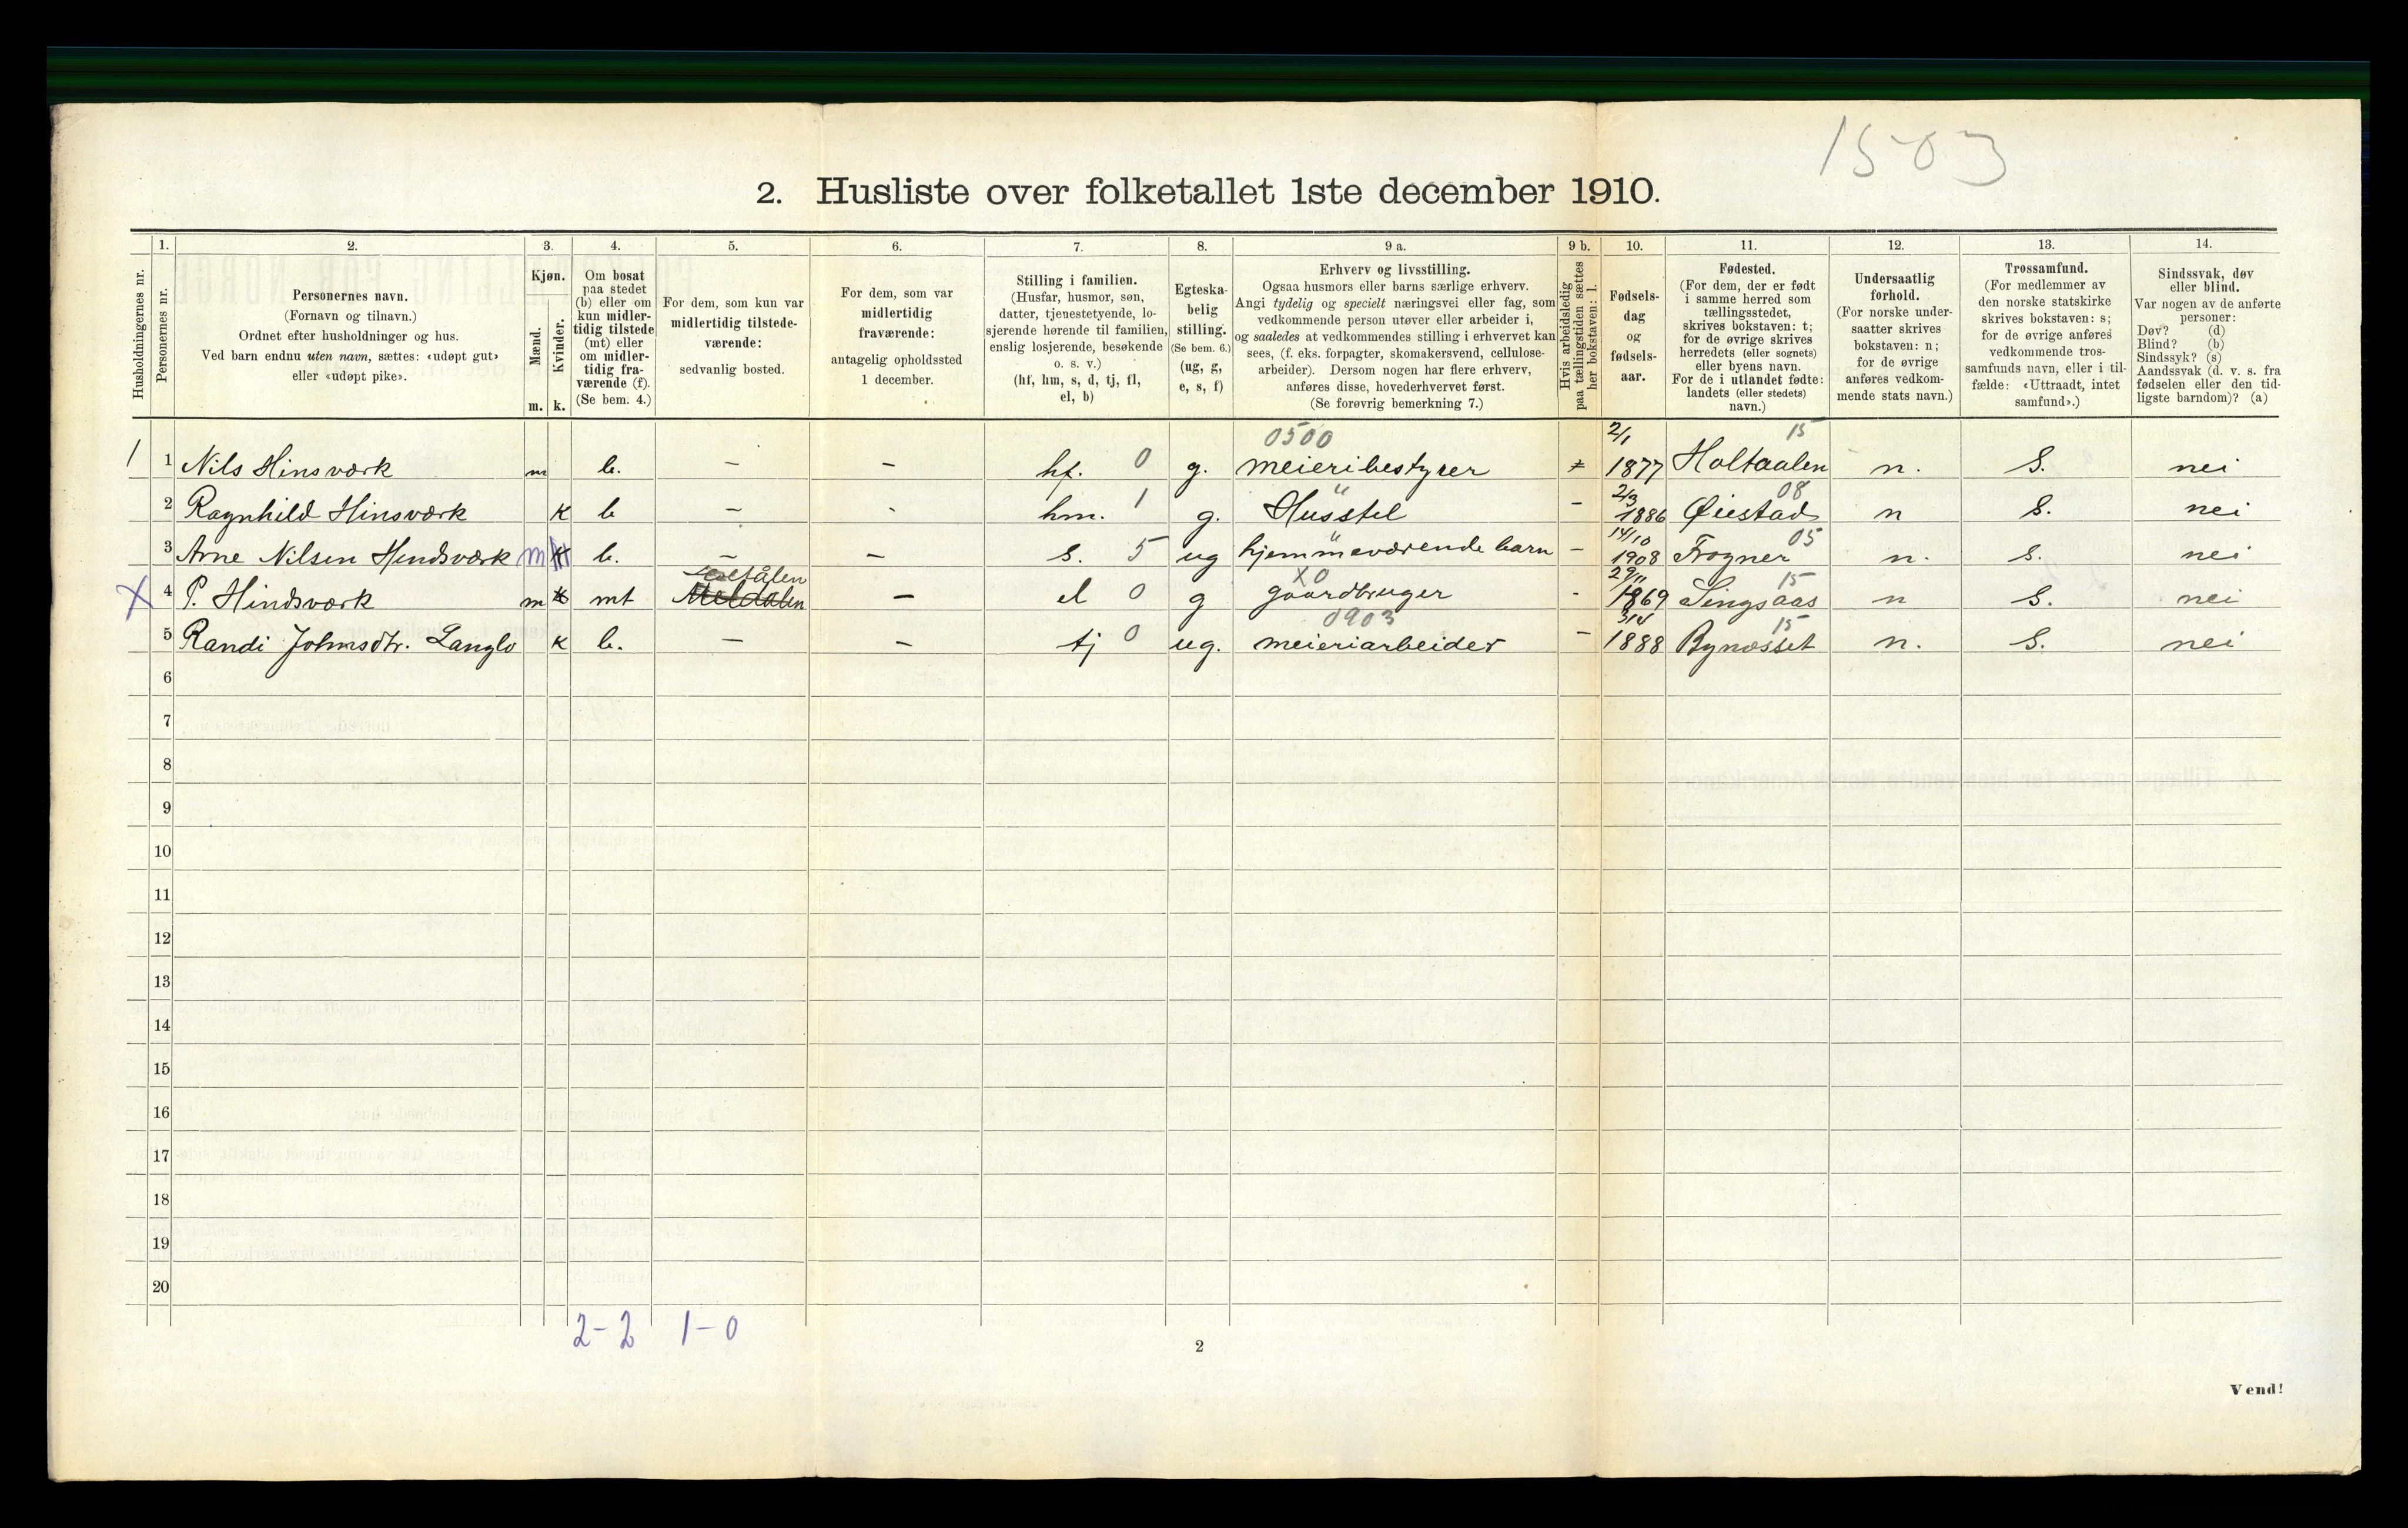 1503
2. Husliste over folketallet 1ste december 1910.
Husholdningernes nr.
1.
Personernes nr.
2.
Personernes navn.
(Fornavn og tilnavn.)
Ordnet efter husholdninger og hus.
Ved barn endnu uten navn, sættes: «udøpt gut»
eller «udøpt pike».
3.
Kjøn.
Mænd.
Kvinder.
m. k.
4.
Om bosat
paa stedet
(b) eller om
kun midler-
tidig tilstede
(mt) eller
om midler-
tidig fra-
værende (f).
(Se bem. 4.)
5.
For dem, som kun var
midlertidig tilstede-
værende:
sedvanlig bosted.
6.
For dem, som var
midlertidig
fraværende:
antagelig opholdssted
1 december.
7.
Stilling i familien.
(Husfar, husmor, søn,
datter, tjenestetyende, lo-
sjerende hørende til familien,
enslig losjerende, besøkende
o. s. v.)
(hf, hm, s, d, tj, fl,
el, b)
8.
Egteska-
belig
stilling.
(Se bem. 6.)
(ug, g,
e, s, f)
9 a.
Erhverv og livsstilling.
Ogsaa husmors eller barns særlige erhverv.
Angi tydelig og specielt næringsvei eller fag, som
vedkommende person utøver eller arbeider i,
og saaledes at vedkommendes stilling i erhvervet kan
sees, (f. eks. forpagter, skomakersvend, cellulose-
arbeider). Dersom nogen har flere erhverv,
anføres disse, hovederhvervet først.
(Se forøvrig bemerkning 7.)
9 b.
Hvis arbeidsledig
paa tællingstiden sættes
her bokstaven: l.
10.
Fødsels-
dag
og
fødsels-
aar.
11.
Fødested.
(For dem, der er født
i samme herred som
tællingsstedet,
skrives bokstaven: t;
for de øvrige skrives
herredets (eller sognets)
eller byens navn.
For de i utlandet fødte:
landets (eller stedets)
navn.)
12.
Undersaatlig
forhold.
(For norske under-
saatter skrives
bokstaven: n;
for de øvrige
anføres vedkom-
mende stats navn.)
13.
Trossamfund.
(For medlemmer av
den norske statskirke
skrives bokstaven: s;
for de øvrige anføres
vedkommende tros-
samfunds navn, eller i til-
fælde: «Uttraadt, intet
samfund».)
14.
Sindssvak, døv
eller blind.
Var nogen av de anførte
personer:
Døv? (d)
Blind? (b)
Sindssyk? (s)
Aandssvak (d. v. s. fra
fødselen eller den tid-
ligste barndom)? (a)
0500 2/1 15
1 1 Nils Hinsværk m b. - - hf. 0 g. meieribestyrer - 1877 Holtaalen n. S. nei
2/3 08
2 Ragnhild Hinsværk K b - - hm. 1 g. Husstel - 1886 Øiestad n S. nei
14/10 05
3 Arne Nilsen Hindsværk m b. - - s. 5 ug hjemmeværende barn - 1908 Frogner n. S. nei
X0 29/11 15
X 4 P. Hindsværk m mt Meldalen - el 0 g gaardbruger - 1869 Singsaas n S. nei
0903 15
5 Randi Johnsdtr. Langlo K b. - - tj 0 ug. meieriarbeider - 1888 Bynæsset n. S. nei
6
7
8
9
10
11
12
13
14
15
16
17
18
19
20
2-2 1-0
2
Vend!